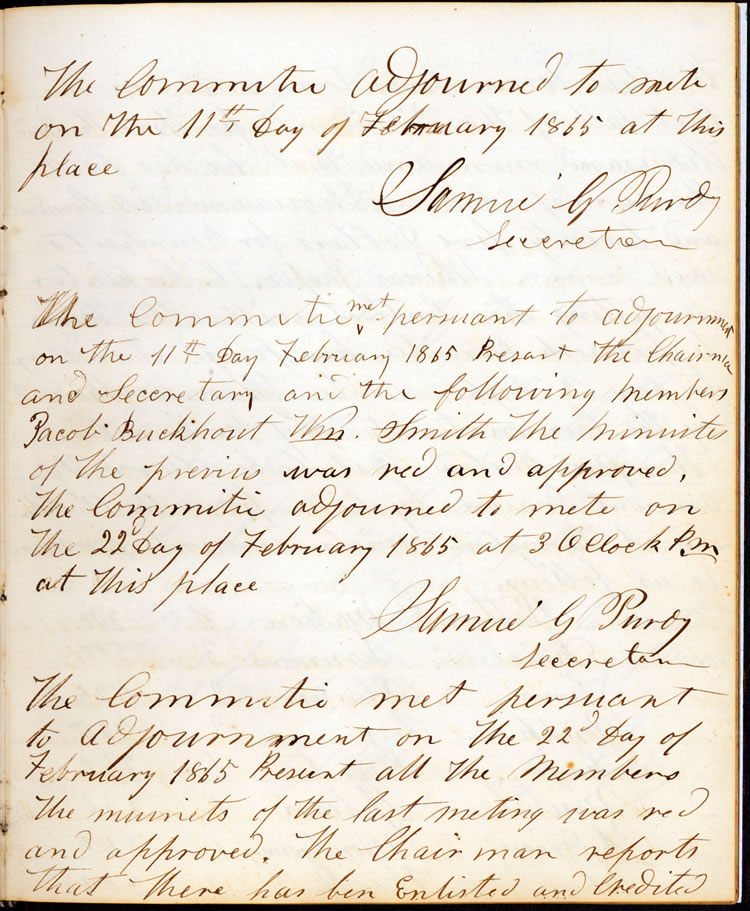 The Committie adjourned to mete
on the 11th Day of February 1865 at this
place
Samuel G Purdy
Seccretary
The Committie met persuant to adjournment
on the 11th Day February 1865 Presant the Chairman
and Seccretary and the following members
Jacob Buckhout Wm. Smith The minuites
of the previus was red and approved.
The Committie adjourned to mete on
the 22d Day of February 1865 at 3 Ocllock P.m
at this place
Samuel G Purdy
Seccretary
The Committie met persuant
to adjournment on the 22d Day of
February 1865 Present all the Members
the muniets of the last meting was red
and approved. The Chairman reports
that there has ben Enlisted and Credited